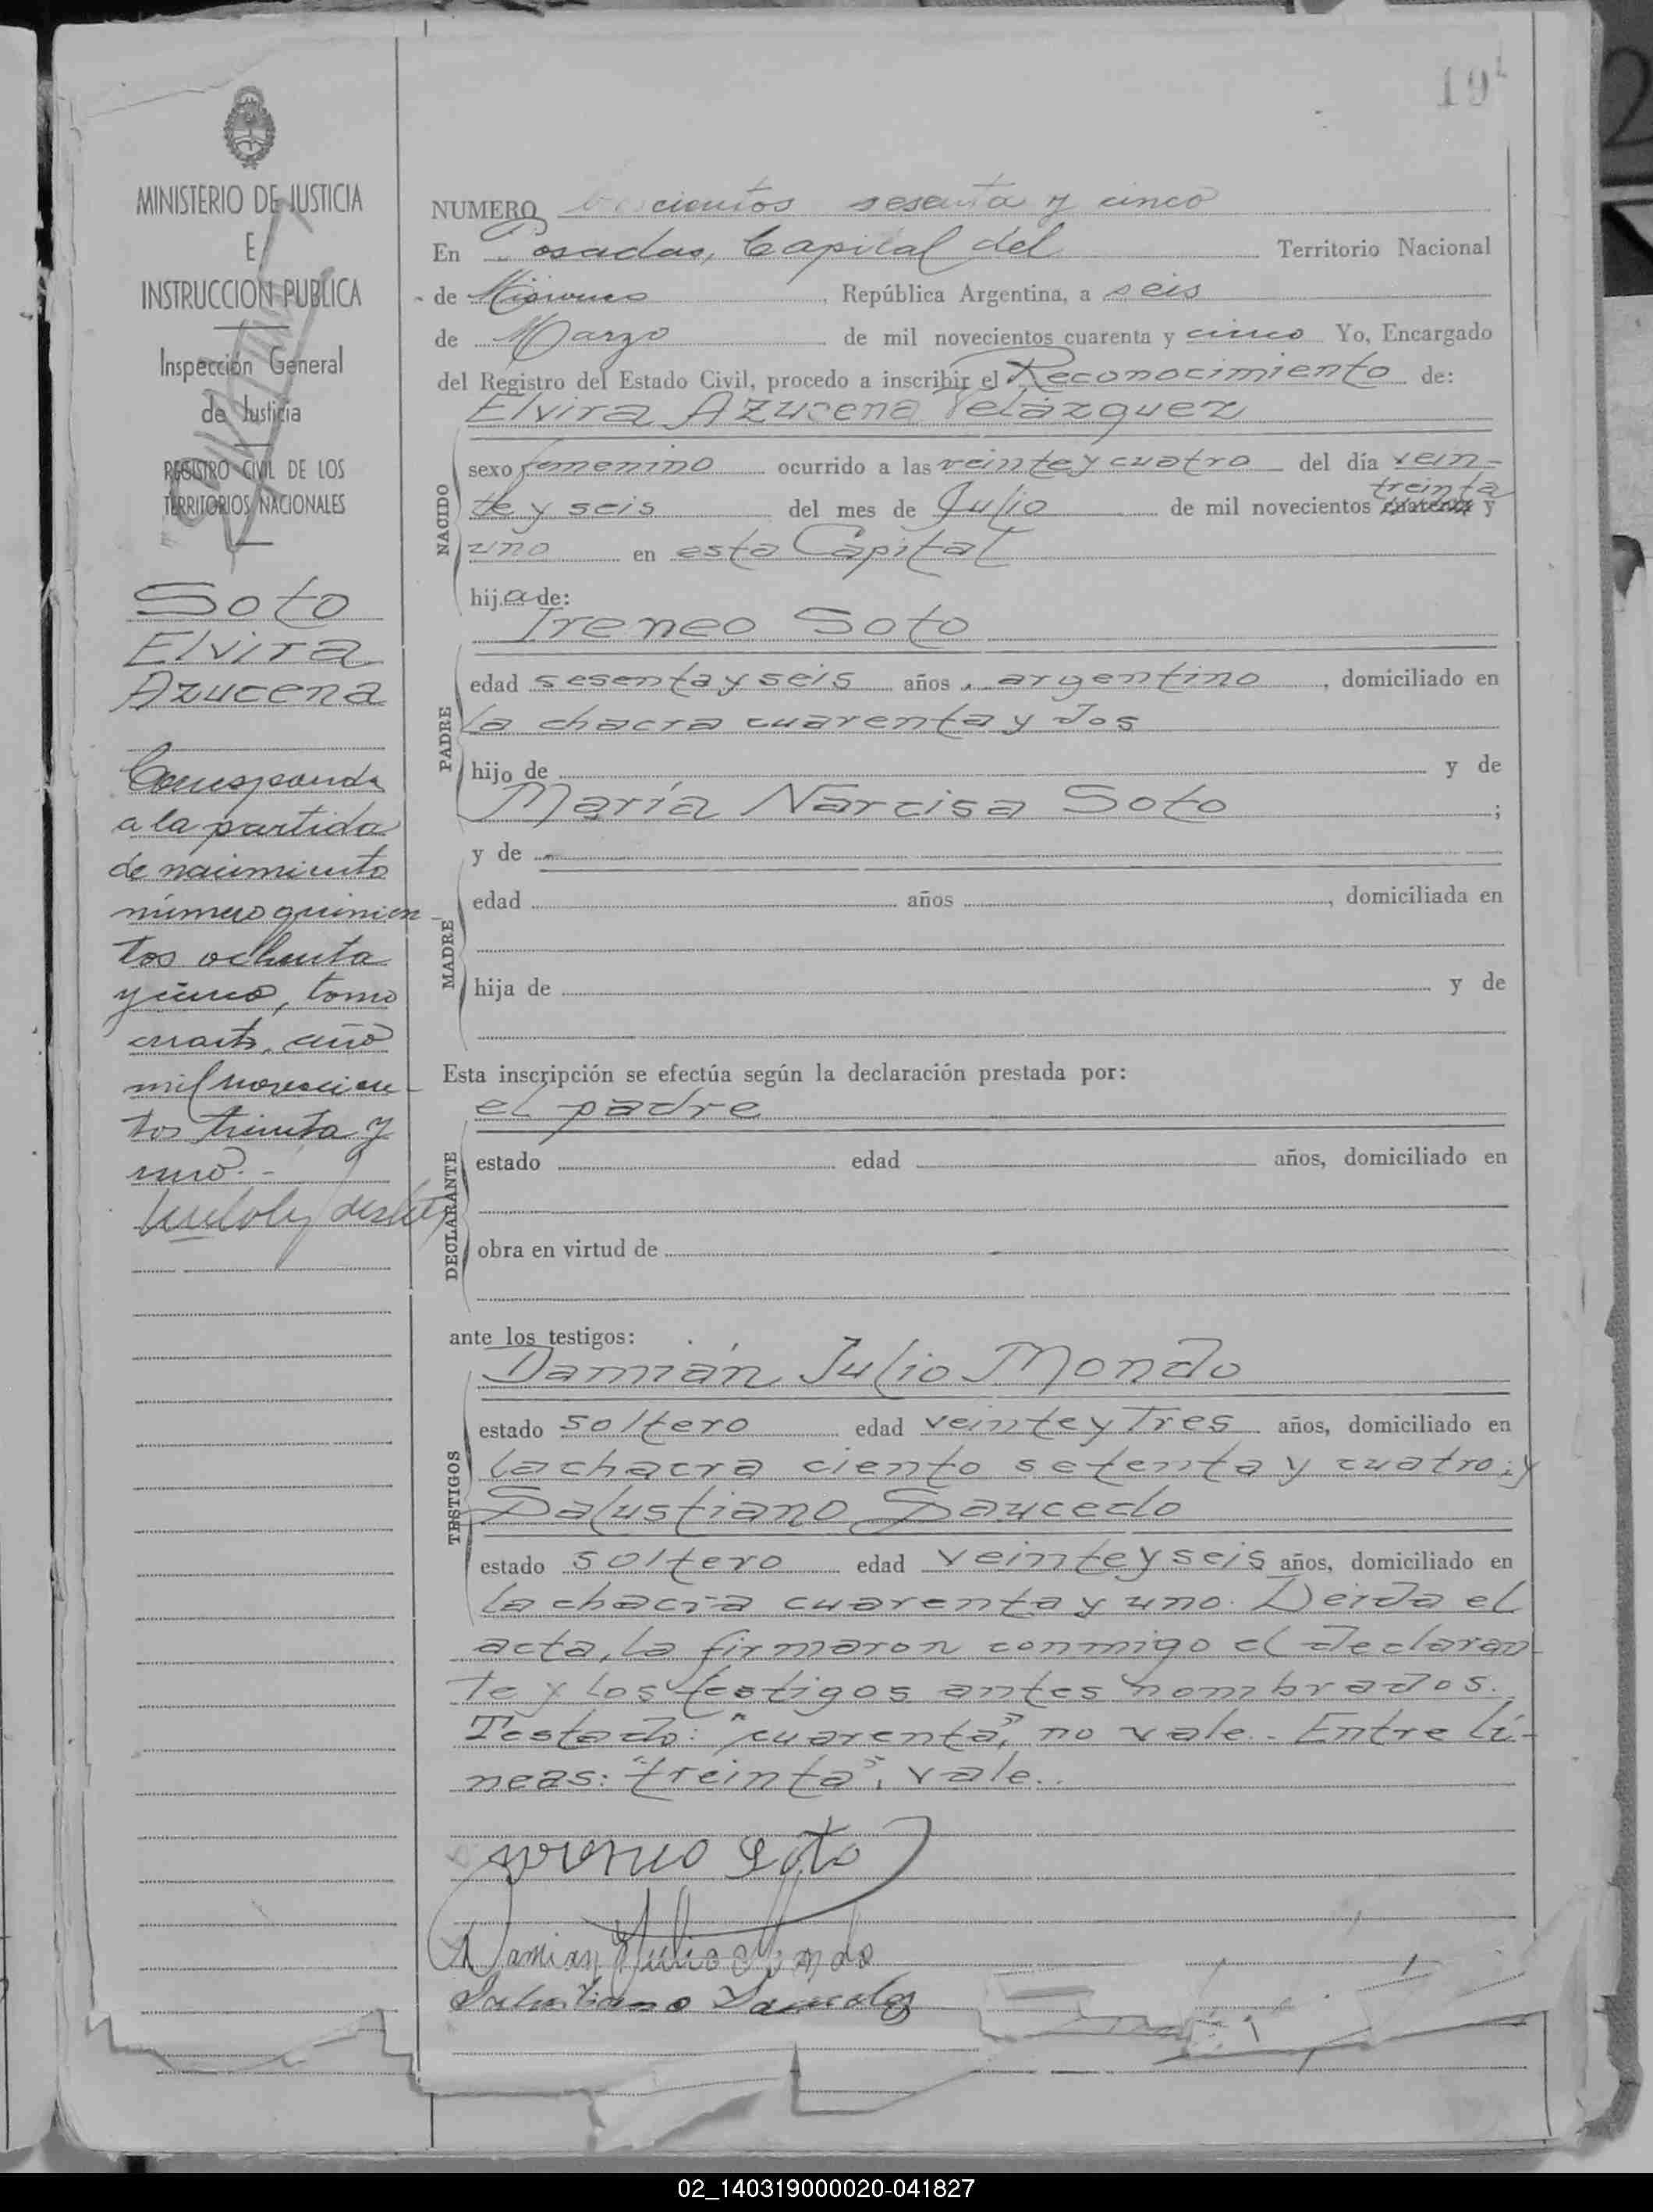 19
MINISTERIO DE JUSTICIA
E
INSTRUCCION PUBLICA
Inspección General
de Justicia
REGISTRO CIVIL DE LOS
TERRITORIOS NACIONALES
Soto
Elvira
Azucena
Corresponde
a la partida
de nacimiento
número quinien-
tos ochenta
y cinco, tomo
cuarto, año
mil novecien-
tos treinta y
uno.-
NUMERO cientos sesenta y cinco
En Posadas, Capital del Territorio Nacional
de Misiones, República Argentina, a seis
de Marzo de mil novecientos cuarenta y cinco Yo, Encargado
del Registro del Estado Civil, procedo a inscribir el Reconocimiento de:
Elvira Azucena Velázquez
NACIDO
sexo femenino ocurrido a las veinte y cuatro del día vein-
treinta
te y seis del mes de Julio de mil novecientos cuarenta y
uno en esta Capital
hija de:
Ireneo Soto
PADRE
edad sesenta y seis años, argentino, domiciliado en
la chacra cuarenta y dos
hijo de y de
María Narcisa Soto ;
y de
MADRE
edad años , domiciliada en
hija de y de
Esta inscripción se efectúa según la declaración prestada por:
el padre
DECLARANTE
estado edad años, domiciliado en
obra en virtud de
ante los testigos:
Damián Julio Mondo
TESTIGOS
estado soltero edad veinte y tres años, domiciliado en
la chacra ciento setenta y cuatro; y
Salustiano Saucedo
estado soltero edad veinte y seis años, domiciliado en
la chacra cuarenta y uno. Leida el
acta, la firmaron conmigo el declaran-
te y los testigos antes nombrados.
Testado: "cuarenta", no vale.- Entre lí-
neas: "treinta", vale..
Ireneo Soto
Damian Julio Mondo
Salustiano Saucedo
02_140319000020-041827